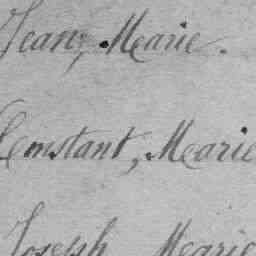 Jean, Marie.
Constant, Marie
Joseph Marie